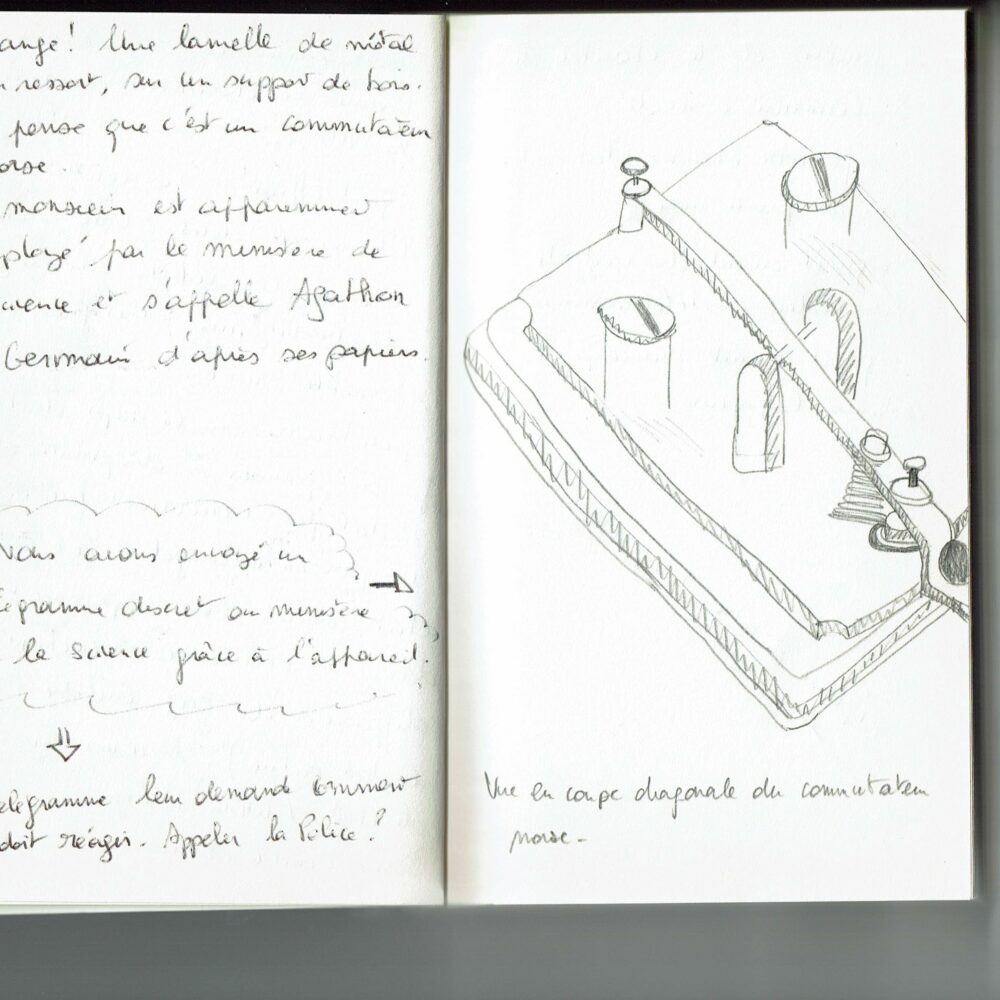 ange! Une lamelle de métal
n ressort, sur un support de bois.
pense que c'est un commutateur
orse.
monsieur est apparemment
ployé par le ministère de
cience et s'appelle Agathon
Germain d'après ses papiers.
Nous avons envoyé un
égramme discret au ministère
la Science grâce à l'appareil.
élégramme leur demande comment
doit réagir. Appeler la Police?
Vue en coupe diagonale du commutateur
morse.